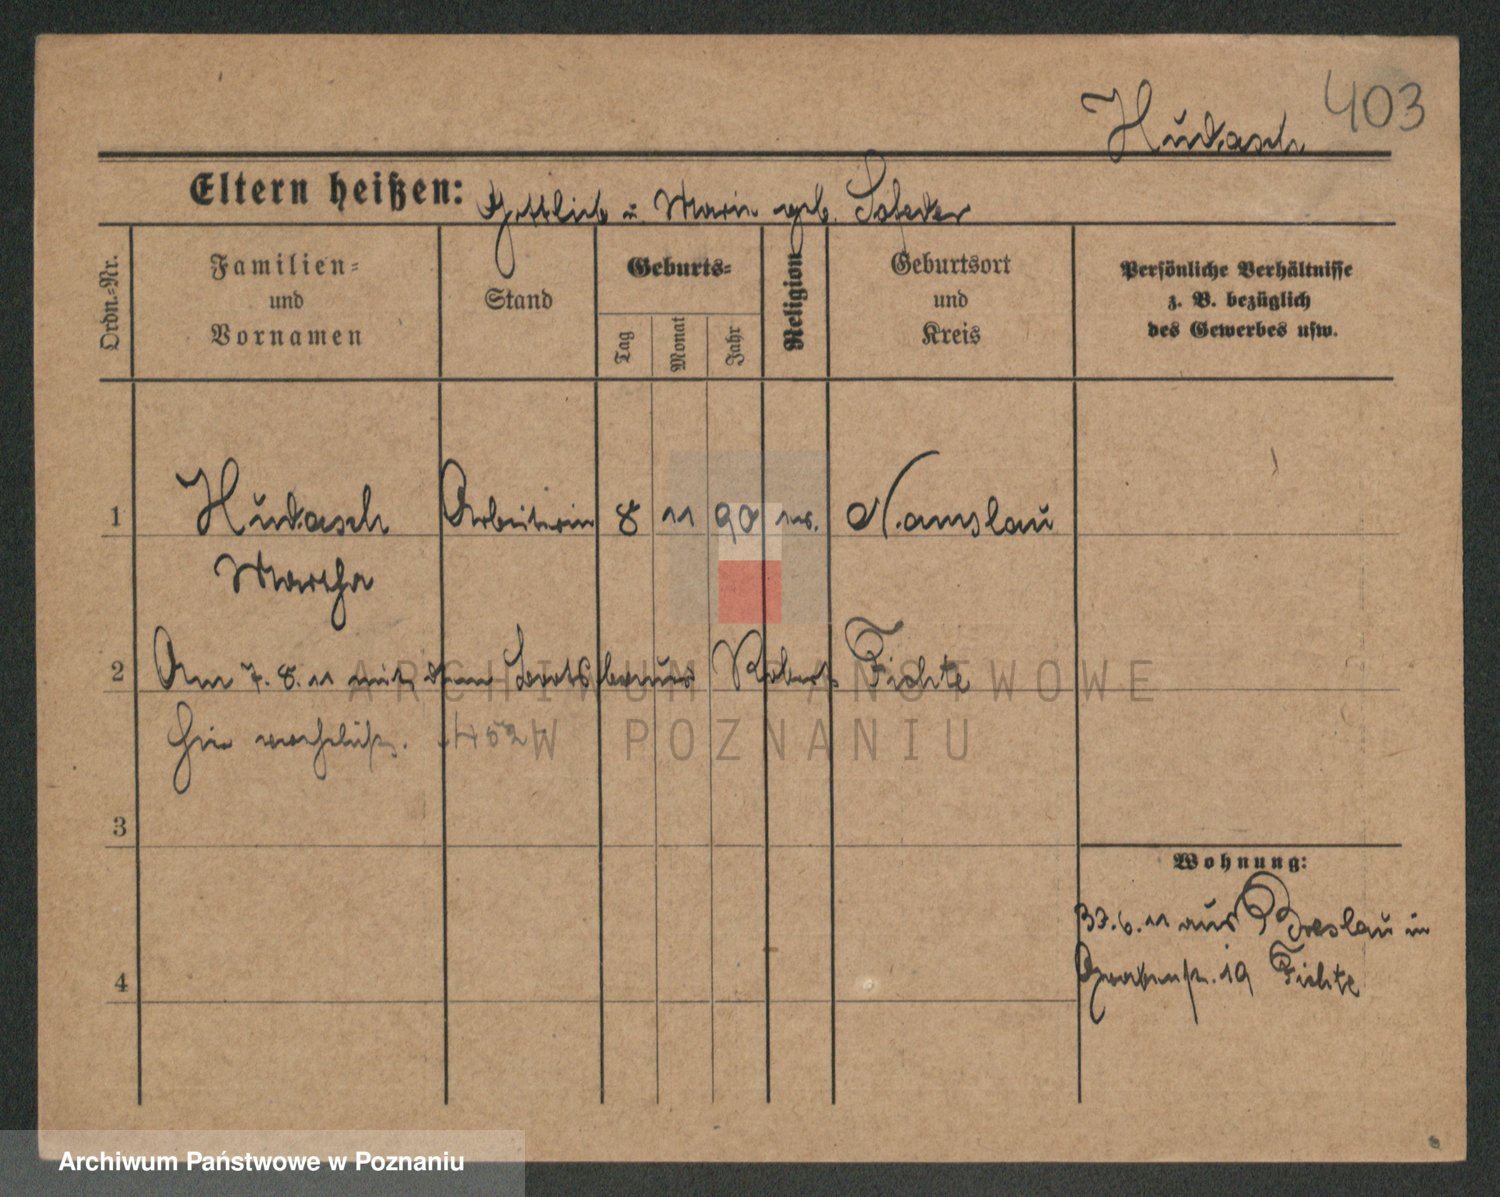 403
Hudasch
Eltern heißen: Gottlieb u. Marie geb.
Ordn.-Nr.
Familien- und Vornamen
Stand
Geburts-
Tag
Monat
Jahr
Religion
Geburtsort und Kreis
Persönliche Verhältnisse z. B. bezüglich des Gewerbes usw.
1 Hudasch Arbeiterin 8 11 90 Namslau
Martha
2 Am 7. 8. 11 mit dem Robert Fichte
hier verehelicht.
3
4
Wohnung:
6. 11 aus Breslau in
Grabenstr. 19 Fichte
ARCHIWUM PAŃSTWOWE
W POZNANIU
Archiwum Państwowe w Poznaniu